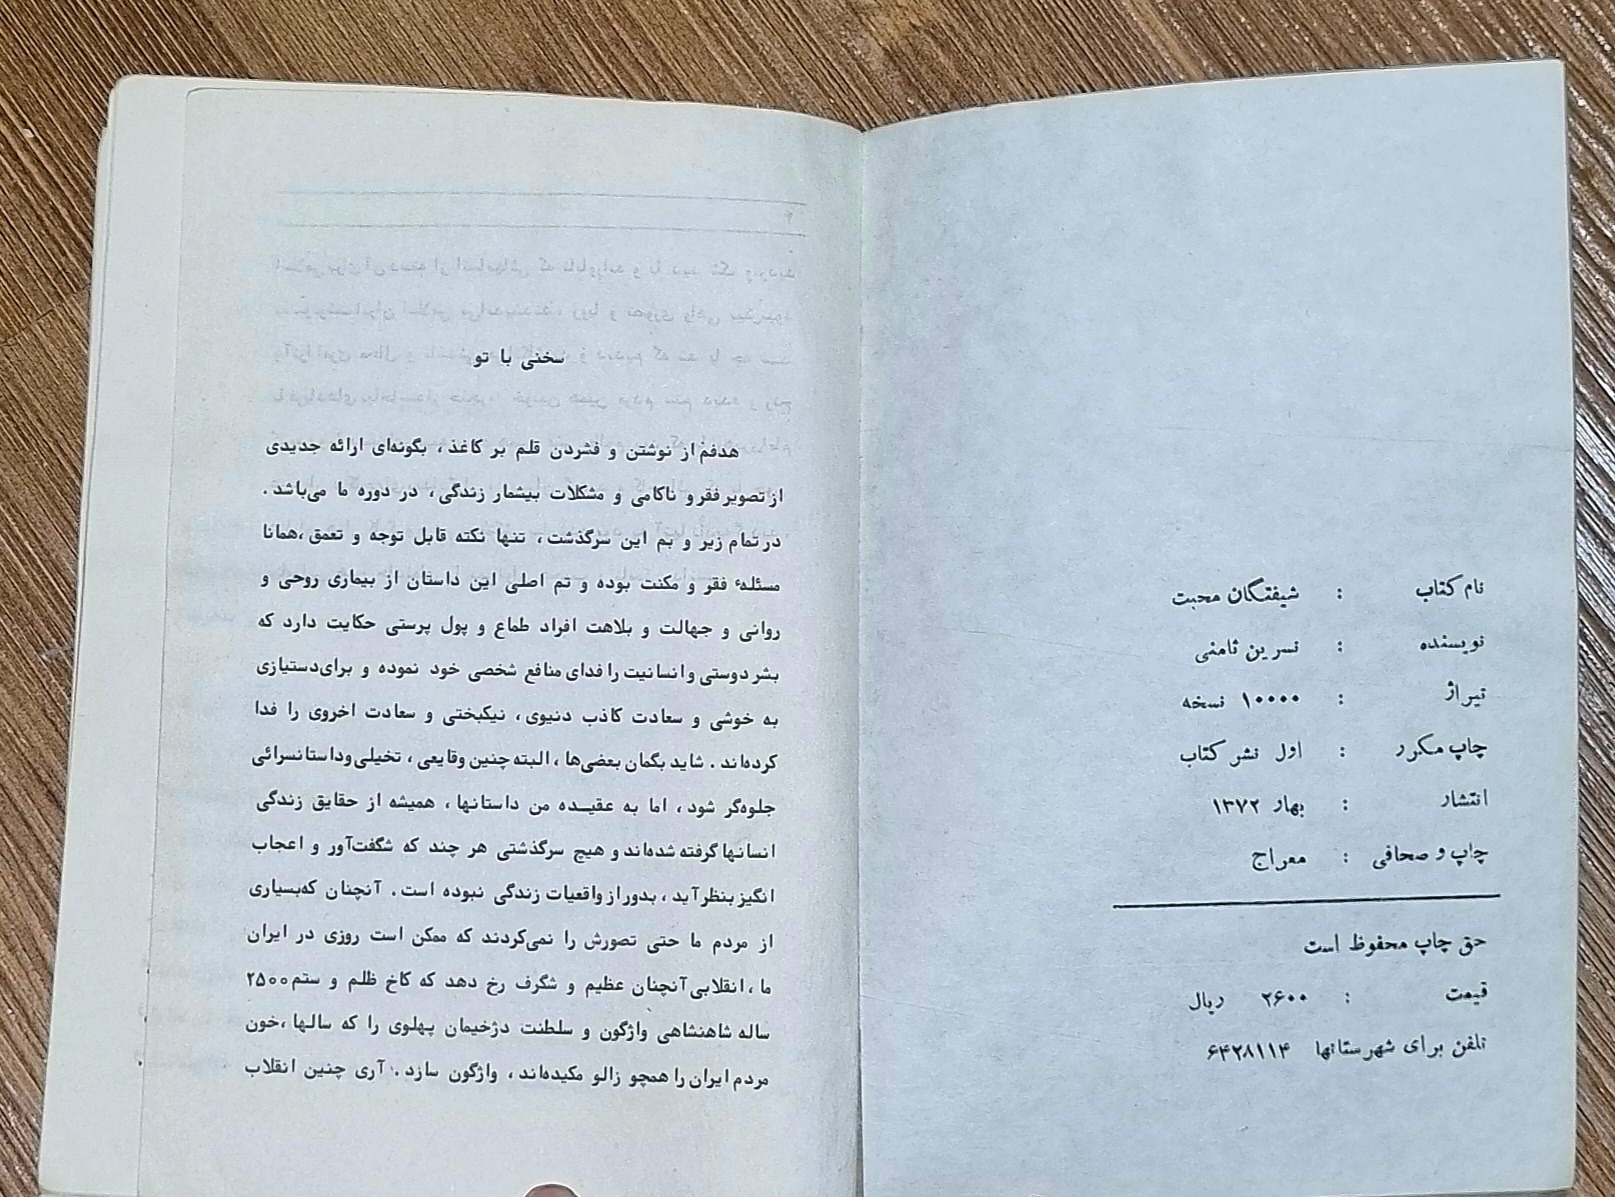 نام کتاب : شیفتگان محبت
نویسنده : نسرین ثامنی
تیراژ : ۱۰۰۰۰ نسخه
چاپ مکرر : اول نشر کتاب
انتشار : بهار ۱۳۷۲
چاپ و صحافی : معراج
حق چاپ محفوظ است
قیمت : ۲۶۰۰ ریال
تلفن برای شهرستانها ۶۴۲۸۱۱۴
سخنی با تو
هدفم از نوشتن و فشردن قلم بر کاغذ ، بگونه‌ای ارائه جدیدی
از تصویر فقر و ناکامی و مشکلات بیشمار زندگی ، در دوره ما می‌باشد .
در تمام زیر و بم این سرگذشت ، تنها نکته قابل توجه و تعمق ، همانا
مسئلهٔ فقر و مکنت بوده و تم اصلی این داستان از بیماری روحی و
روانی و جهالت و بلاهت افراد طماع و پول پرستی حکایت دارد که
بشر دوستی و انسانیت را فدای منافع شخصی خود نموده و برای دستیازی
به خوشی و سعادت کاذب دنیوی ، نیکبختی و سعادت اخروی را فدا
کرده‌اند . شاید بگمان بعضی‌ها ، البته چنین وقایعی ، تخیلی و داستانسرائی
جلوه‌گر شود ، اما به عقیـده من داستانها ، همیشه از حقایق زندگی
انسانها گرفته شده‌اند و هیچ سرگذشتی هر چند که شگفت‌آور و اعجاب
انگیز بنظر آید ، بدور از واقعیات زندگی نبوده است . آنچنان که بسیاری
از مردم ما حتی تصورش را نمی‌کردند که ممکن است روزی در ایران
ما ، انقلابی آنچنان عظیم و شگرف رخ دهد که کاخ ظلم و ستم ۲۵۰۰
ساله شاهنشاهی واژگون و سلطنت دژخیمان پهلوی را که سالها ، خون
مردم ایران را همچو زالو مکیده‌اند ، واژگون سازد . آری چنین انقلاب